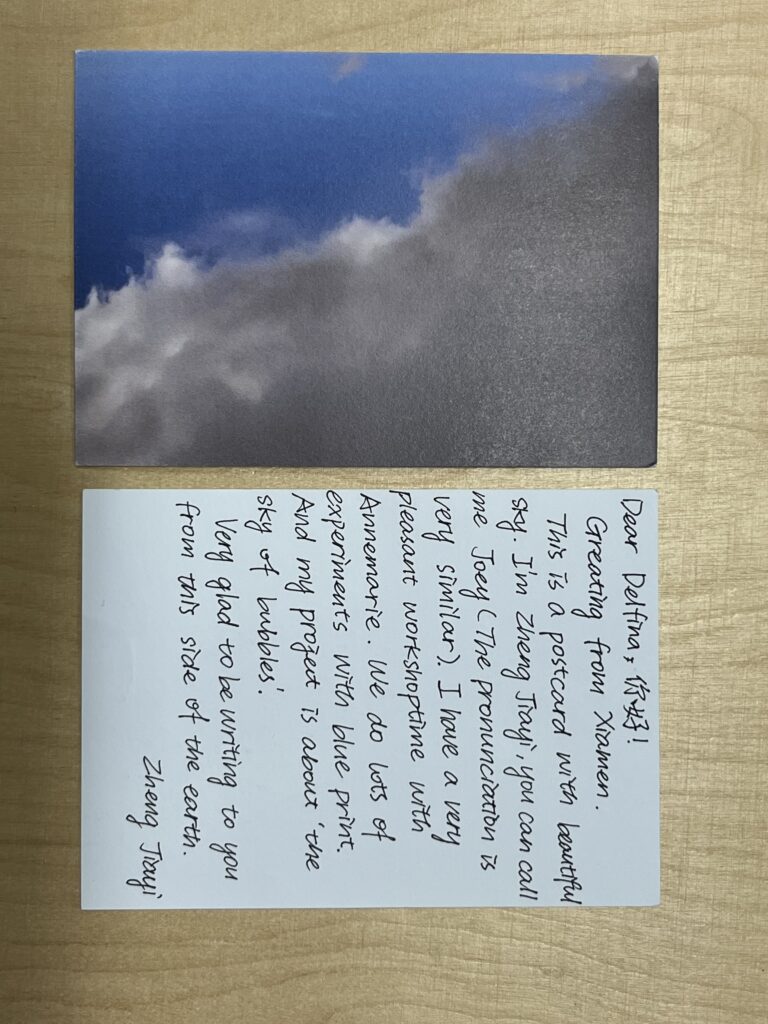 Dear Delfina, 你好!
Greating from Xiamen.
This is a postcard with beautiful
sky. I'm Zheng Jiayi, you can call
me Joey (The pronunciation is
very similar). I have a very
pleasant workshoptime with
Annemarie. We do lots of
experiments with blue print.
And my project is about 'the
sky of bubbles'.
Very glad to be writing to you
from this side of the earth.
Zheng Jiayi